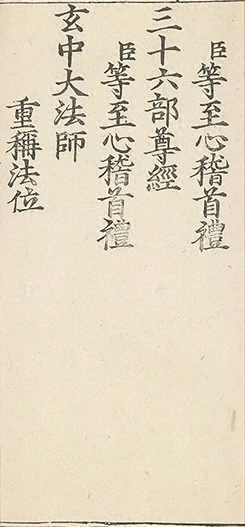 臣等至心稽首禮
三十六部尊經
臣等至心稽首禮
玄中大法師
重稱法位